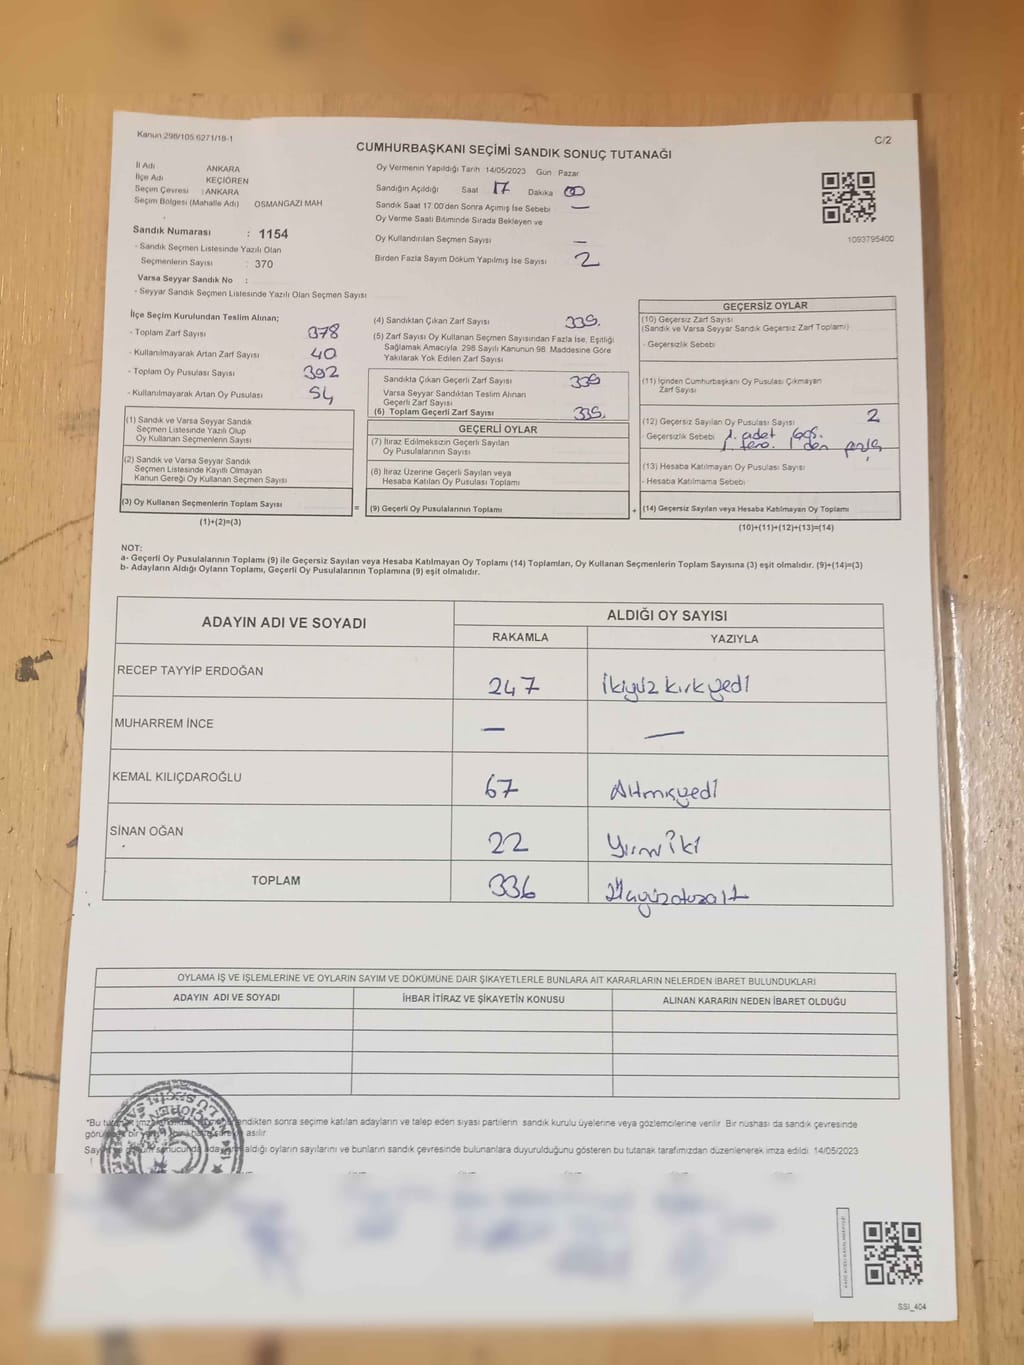 Kanun 298/105 6271/18-1
C/2
CUMHURBAŞKANI SEÇİMİ SANDIK SONUÇ TUTANAĞI
İl Adı ANKARA
İlçe Adı KEÇİÖREN
Seçim Çevresi : ANKARA
Seçim Bölgesi (Mahalle Adı) OSMANGAZI MAH
Sandık Numarası : 1154
- Sandık Seçmen Listesinde Yazılı Olan
Seçmenlerin Sayısı : 370
Varsa Seyyar Sandık No :
- Seyyar Sandık Seçmen Listesinde Yazılı Olan Seçmen Sayısı
Oy Vermenin Yapıldığı Tarih 14/05/2023 Gün Pazar
Sandığın Açıldığı Saat 17 Dakika 00
Sandık Saat 17.00'den Sonra Açımış İse Sebebi —
Oy Verme Saati Bitiminde Sırada Bekleyen ve
Oy Kullandırılan Seçmen Sayısı —
Birden Fazla Sayım Döküm Yapılmış İse Sayısı 2
1093795400
İlçe Seçim Kurulundan Teslim Alınan;
- Toplam Zarf Sayısı 378
- Kullanılmayarak Artan Zarf Sayısı 40
- Toplam Oy Pusulası Sayısı 392
- Kullanılmayarak Artan Oy Pusulası 54
(1) Sandık ve Varsa Seyyar Sandık
Seçmen Listesinde Yazılı Olup
Oy Kullanan Seçmenlerin Sayısı
(2) Sandık ve Varsa Seyyar Sandık
Seçmen Listesinde Kayıtlı Olmayan
Kanun Gereği Oy Kullanan Seçmen Sayısı
(3) Oy Kullanan Seçmenlerin Toplam Sayısı
(1)+(2)=(3)
(4) Sandıktan Çıkan Zarf Sayısı
(5) Zarf Sayısı Oy Kullanan Seçmen Sayısından Fazla İse, Eşitliği
Sağlamak Amacıyla 298 Sayılı Kanunun 98. Maddesine Göre
Yakılarak Yok Edilen Zarf Sayısı
Sandıkta Çıkan Geçerli Zarf Sayısı
Varsa Seyyar Sandıktan Teslim Alınan
Geçerli Zarf Sayısı
(6) Toplam Geçerli Zarf Sayısı
GEÇERLİ OYLAR
(7) İtiraz Edilmeksizin Geçerli Sayılan
Oy Pusulalarının Sayısı
(8) İtiraz Üzerine Geçerli Sayılan veya
Hesaba Katılan Oy Pusulası Toplamı
= (9) Geçerli Oy Pusulalarının Toplamı
GEÇERSİZ OYLAR
(10) Geçersiz Zarf Sayısı
(Sandık ve Varsa Seyyar Sandık Geçersiz Zarf Toplamı)
- Geçersizlik Sebebi
(11) İçinden Cumhurbaşkanı Oy Pusulası Çıkmayan
Zarf Sayısı
(12) Geçersiz Sayılan Oy Pusulası Sayısı 2
- Geçersizlik Sebebi 1. adet
(13) Hesaba Katılmayan Oy Pusulası Sayısı
- Hesaba Katılmama Sebebi
+ (14) Geçersiz Sayılan veya Hesaba Katılmayan Oy Toplamı
(10)+(11)+(12)+(13)=(14)
NOT:
a- Geçerli Oy Pusulalarının Toplamı (9) ile Geçersiz Sayılan veya Hesaba Katılmayan Oy Toplamı (14) Toplamları, Oy Kullanan Seçmenlerin Toplam Sayısına (3) eşit olmalıdır. (9)+(14)=(3)
b- Adayların Aldığı Oyların Toplamı, Geçerli Oy Pusulalarının Toplamına (9) eşit olmalıdır.
ADAYIN ADI VE SOYADI ALDIĞI OY SAYISI
RAKAMLA YAZIYLA
RECEP TAYYİP ERDOĞAN 247 İkiyüz kırk yedi
MUHARREM İNCE — —
KEMAL KILIÇDAROĞLU 67 Altmışyedi
SİNAN OĞAN 22 Yirmi iki
TOPLAM 336 Üçyüzotuzaltı
OYLAMA İŞ VE İŞLEMLERİNE VE OYLARIN SAYIM VE DÖKÜMÜNE DAİR ŞİKAYETLERLE BUNLARA AİT KARARLARIN NELERDEN İBARET BULUNDUKLARI
ADAYIN ADI VE SOYADI İHBAR İTİRAZ VE ŞİKAYETİN KONUSU ALINAN KARARIN NEDEN İBARET OLDUĞU
sonra seçime katılan adayların ve talep eden siyasi partilerin sandık kurulu üyelerine veya gözlemcilerine verilir. Bir nüshası da sandık çevresinde
asılır.
aldığı oyların sayılarını ve bunların sandık çevresinde bulunanlara duyurulduğunu gösteren bu tutanak tarafımızdan düzenlenerek imza edildi. 14/05/2023
SSI_404